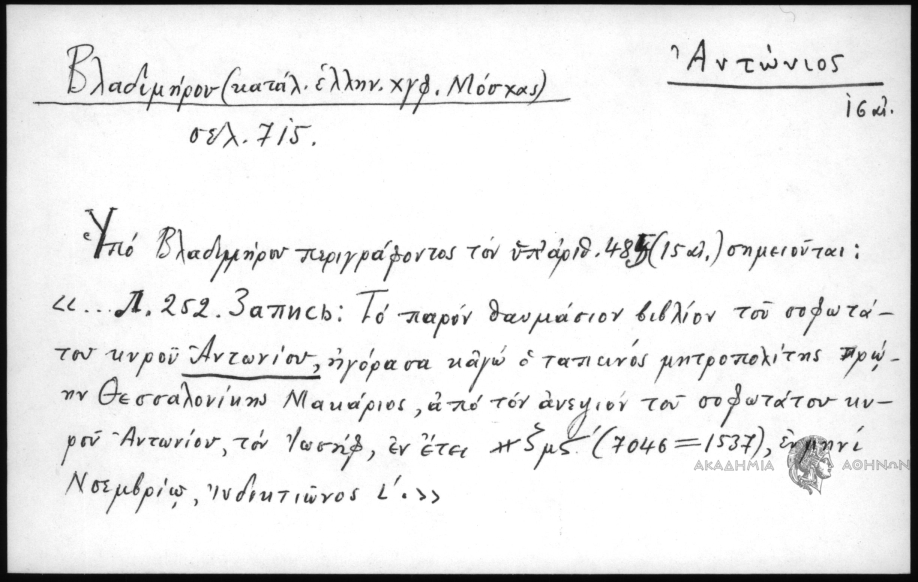 Βλαδιμήρου (κατάλ. ἑλλην. χγφ. Μόσχας)
σελ. 715.
Ἀντώνιος
16 αἰ.
Ὑπό Βλαδιμμήρου περιγράφοντος τόν ὑπ' ἀριθ. 485 (15 αἰ.) σημειοῦται:
«... Л. 252. Запись: Τό παρόν θαυμάσιον βιβλίον τοῦ σοφωτά-
του κυροῦ Ἀντωνίου, ἠγόρασα κἀγώ ὁ ταπεινός μητροπολίτης πρώ-
ην Θεσσαλονίκης Μακάριος, ἀπό τόν ἀνεψιόν τοῦ σοφωτάτου κυ-
ροῦ Ἀντωνίου, τόν Ἰωσήφ, ἐν ἔτει ͵ζμζ΄ (7046=1537), ἐν μηνί
Νοεμβρίῳ, ἰνδικτιῶνος ι΄.»
ΑΚΑΔΗΜΙΑ ΑΘΗΝΩΝ